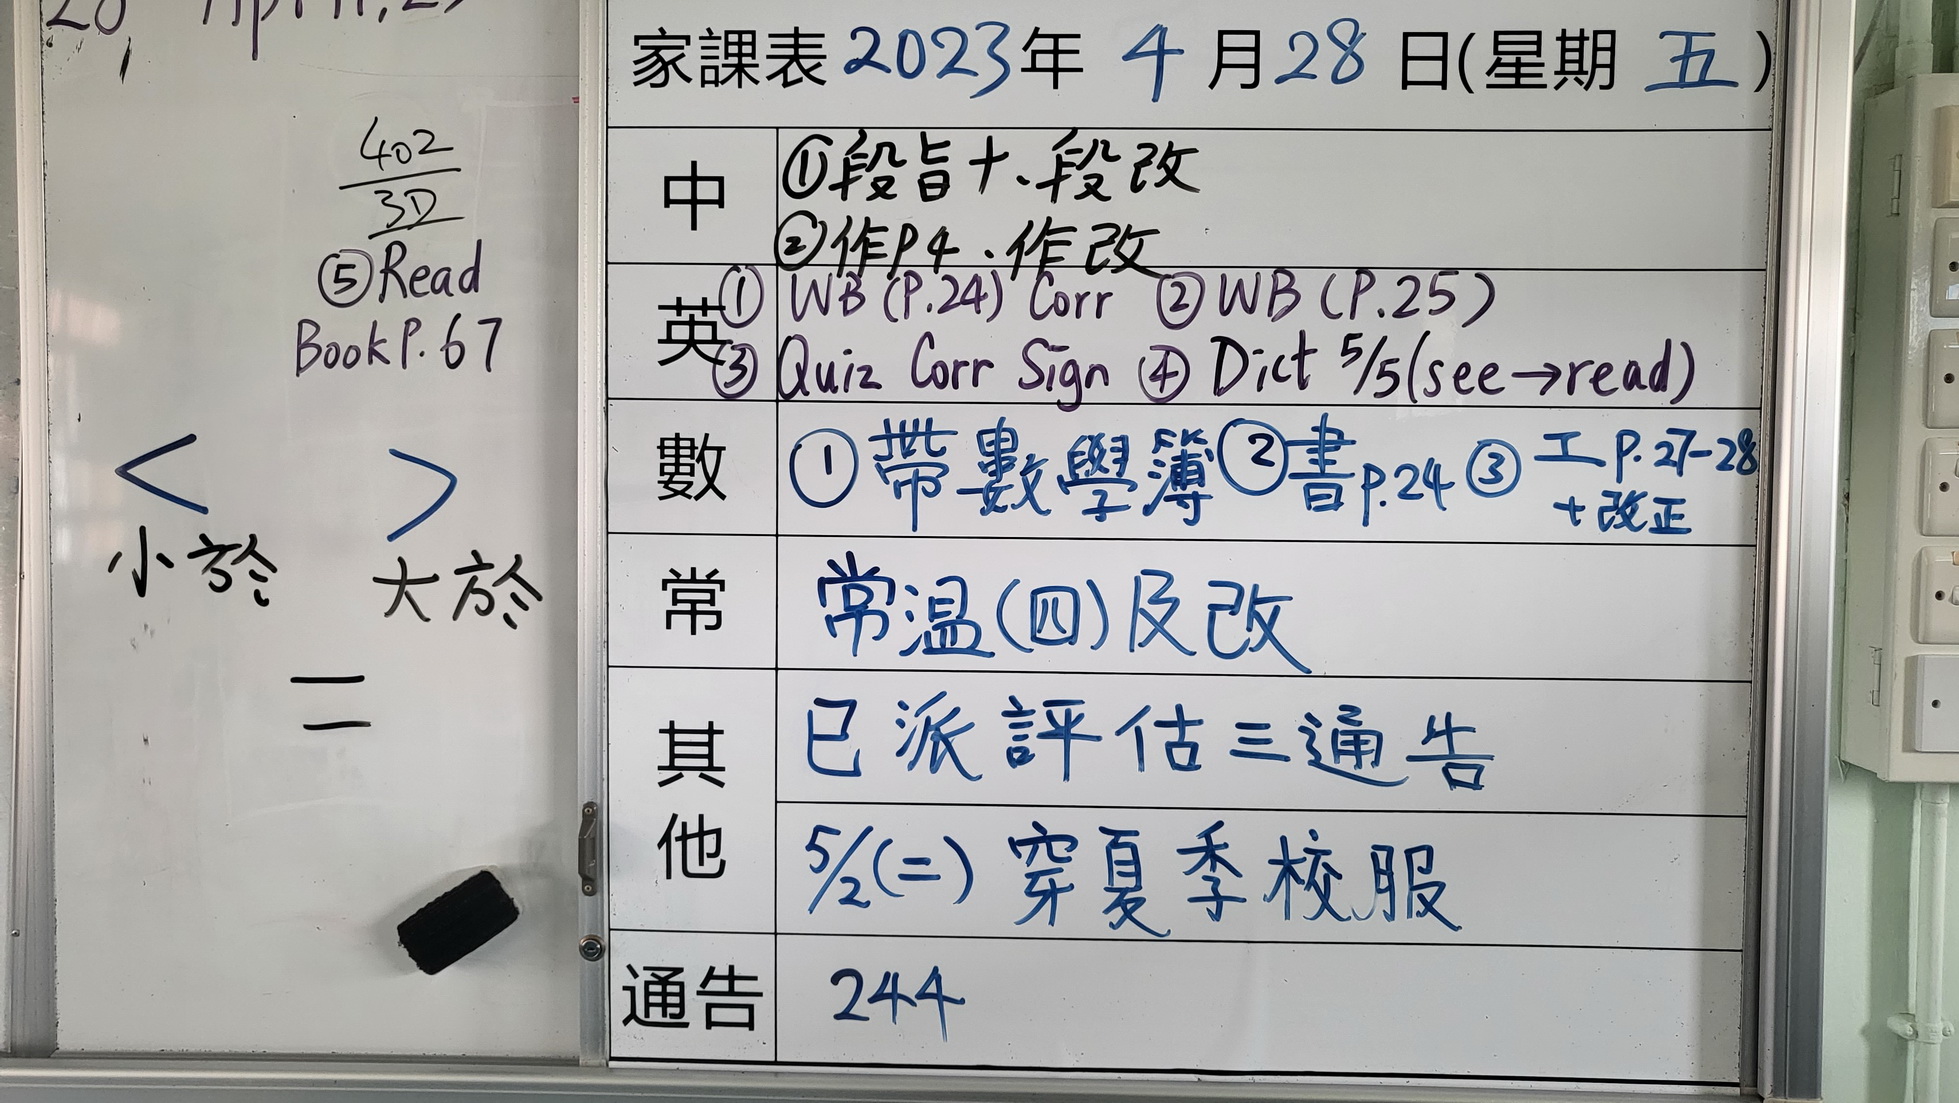 402
3D
⑤Read
Book P.67
<
>
小於
大於
=
家課表 2023年 4月28日(星期五)
中
①段旨十、段改
②作P4、作改
英
① WB (P.24) Corr ② WB (P.25)
③ Quiz Corr Sign ④ Dict 5/5(see→read)
數
① 帶數學簿②書p.24 ③ 工P.27-28
+改正
常
常温(四)及改
其他
已派評估三通告
5/2(二) 穿夏季校服
通告
244